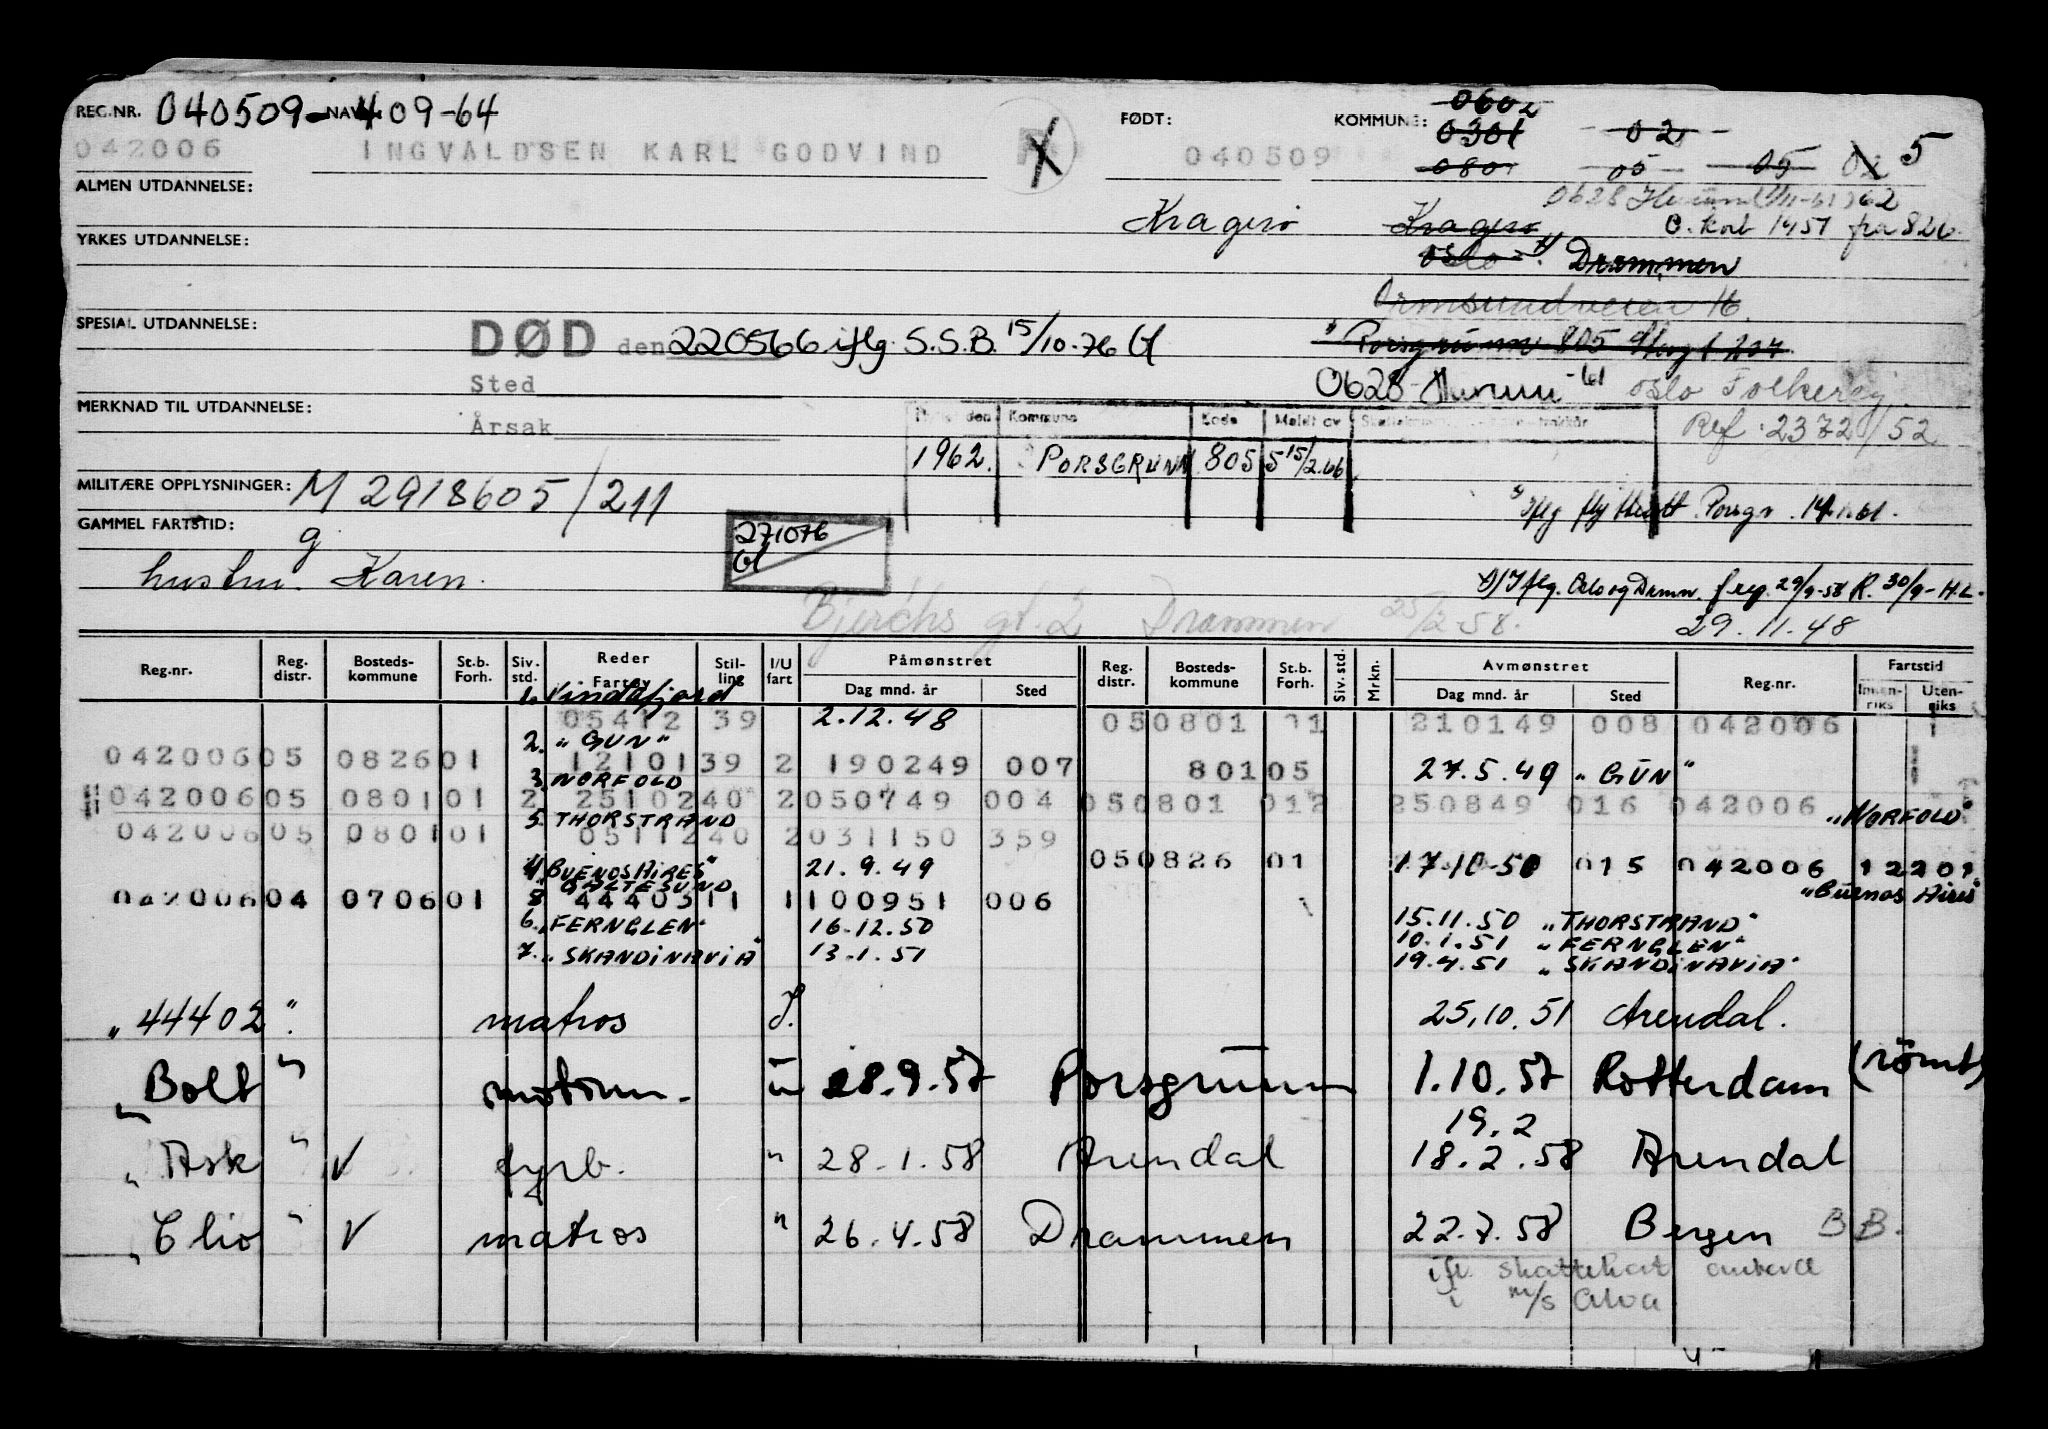 REG.NR. 040509-409-64 FØDT: KOMMUNE: 0602
0301 - 02 - 5
042006 INGVALDSEN KARL GODVIND 040509 0801 05 - 05 02
ALMEN UTDANNELSE: 0628 Hurum 1/11-61 262
Kragerø Kragerø O. kort 1451 fra 826.
YRKES UTDANNELSE: Oslo - Drammen
Ormsundveien 16.
SPESIAL UTDANNELSE: DØD den 220566 iflg. S.S.B. 15/10-76 Gl Porsgrunn 805
Sted 0628 Hurum -61 Oslo Folkereg.
MERKNAD TIL UTDANNELSE: den Kommune Kode Meldt av
Årsak Ref. 2372/52
1962. PORSGRUNN 805 5 15/2.66
MILITÆRE OPPLYSNINGER: M 2918605/211
GAMMEL FARTSTID: g iflg Porsgr. 14.1.61.
271076 Gl
hustru. Karen. Iflg. Oslo og Dramm. f.reg. 29/9-58 R. 30/9- H.L.
Bjerchs gt. 2 Drammen 25/2-58. 29.11.48
Reg.nr. Reg. distr. Bosteds- kommune St.b. Forh. Siv. std. Reder Fartøy Stil- ling I/U fart Påmønstret Reg. distr. Bosteds- kommune St.b. Forh. Siv. std. Mrkn. Avmønstret Reg.nr. Fartstid
Dag mnd. år Sted Dag mnd. år Sted Innen- riks Uten- riks
1. Vindafjord
05412 39 2.12.48 050801 01 210149 008 042006
2. "GUN"
042006 05 0826 01 12101 39 2 190249 007 801 05 27.5.49 "GUN"
3. NORFOLD
042006 05 0801 01 2 25102 40 2 050749 004 050801 012 250849 016 042006 "NORFOLD"
5. THORSTRAND
042006 05 0801 01 05112 40 2 031150 359
4. "BUENOS AIRES" 21.9.49 050826 01 17-10-50 015 042006 12201
"GALTESUND" "Buenos Aires"
042006 04 0706 01 8 44403 11 1 100951 006
6. "FERNGLEN" 16.12.50 15.11.50 "THORSTRAND"
10.1.51 "FERNGLEN"
7. "SKANDINAVIA" 13.1.51 19.4.51 "SKANDINAVIA"
"44402" matros J. 25.10.51 Arendal.
"Bolt" motorm. u 28.9.57 Porsgrunn 1.10.57 Rotterdam (römt)
19.2
"Ask" V fyrb. " 28.1.58 Arendal 18.2.58 Arendal
"Clio" V matros " 26.4.58 Drammen 22.7.58 Bergen BB.
ifl. skattekort ombord
i m/s Alva